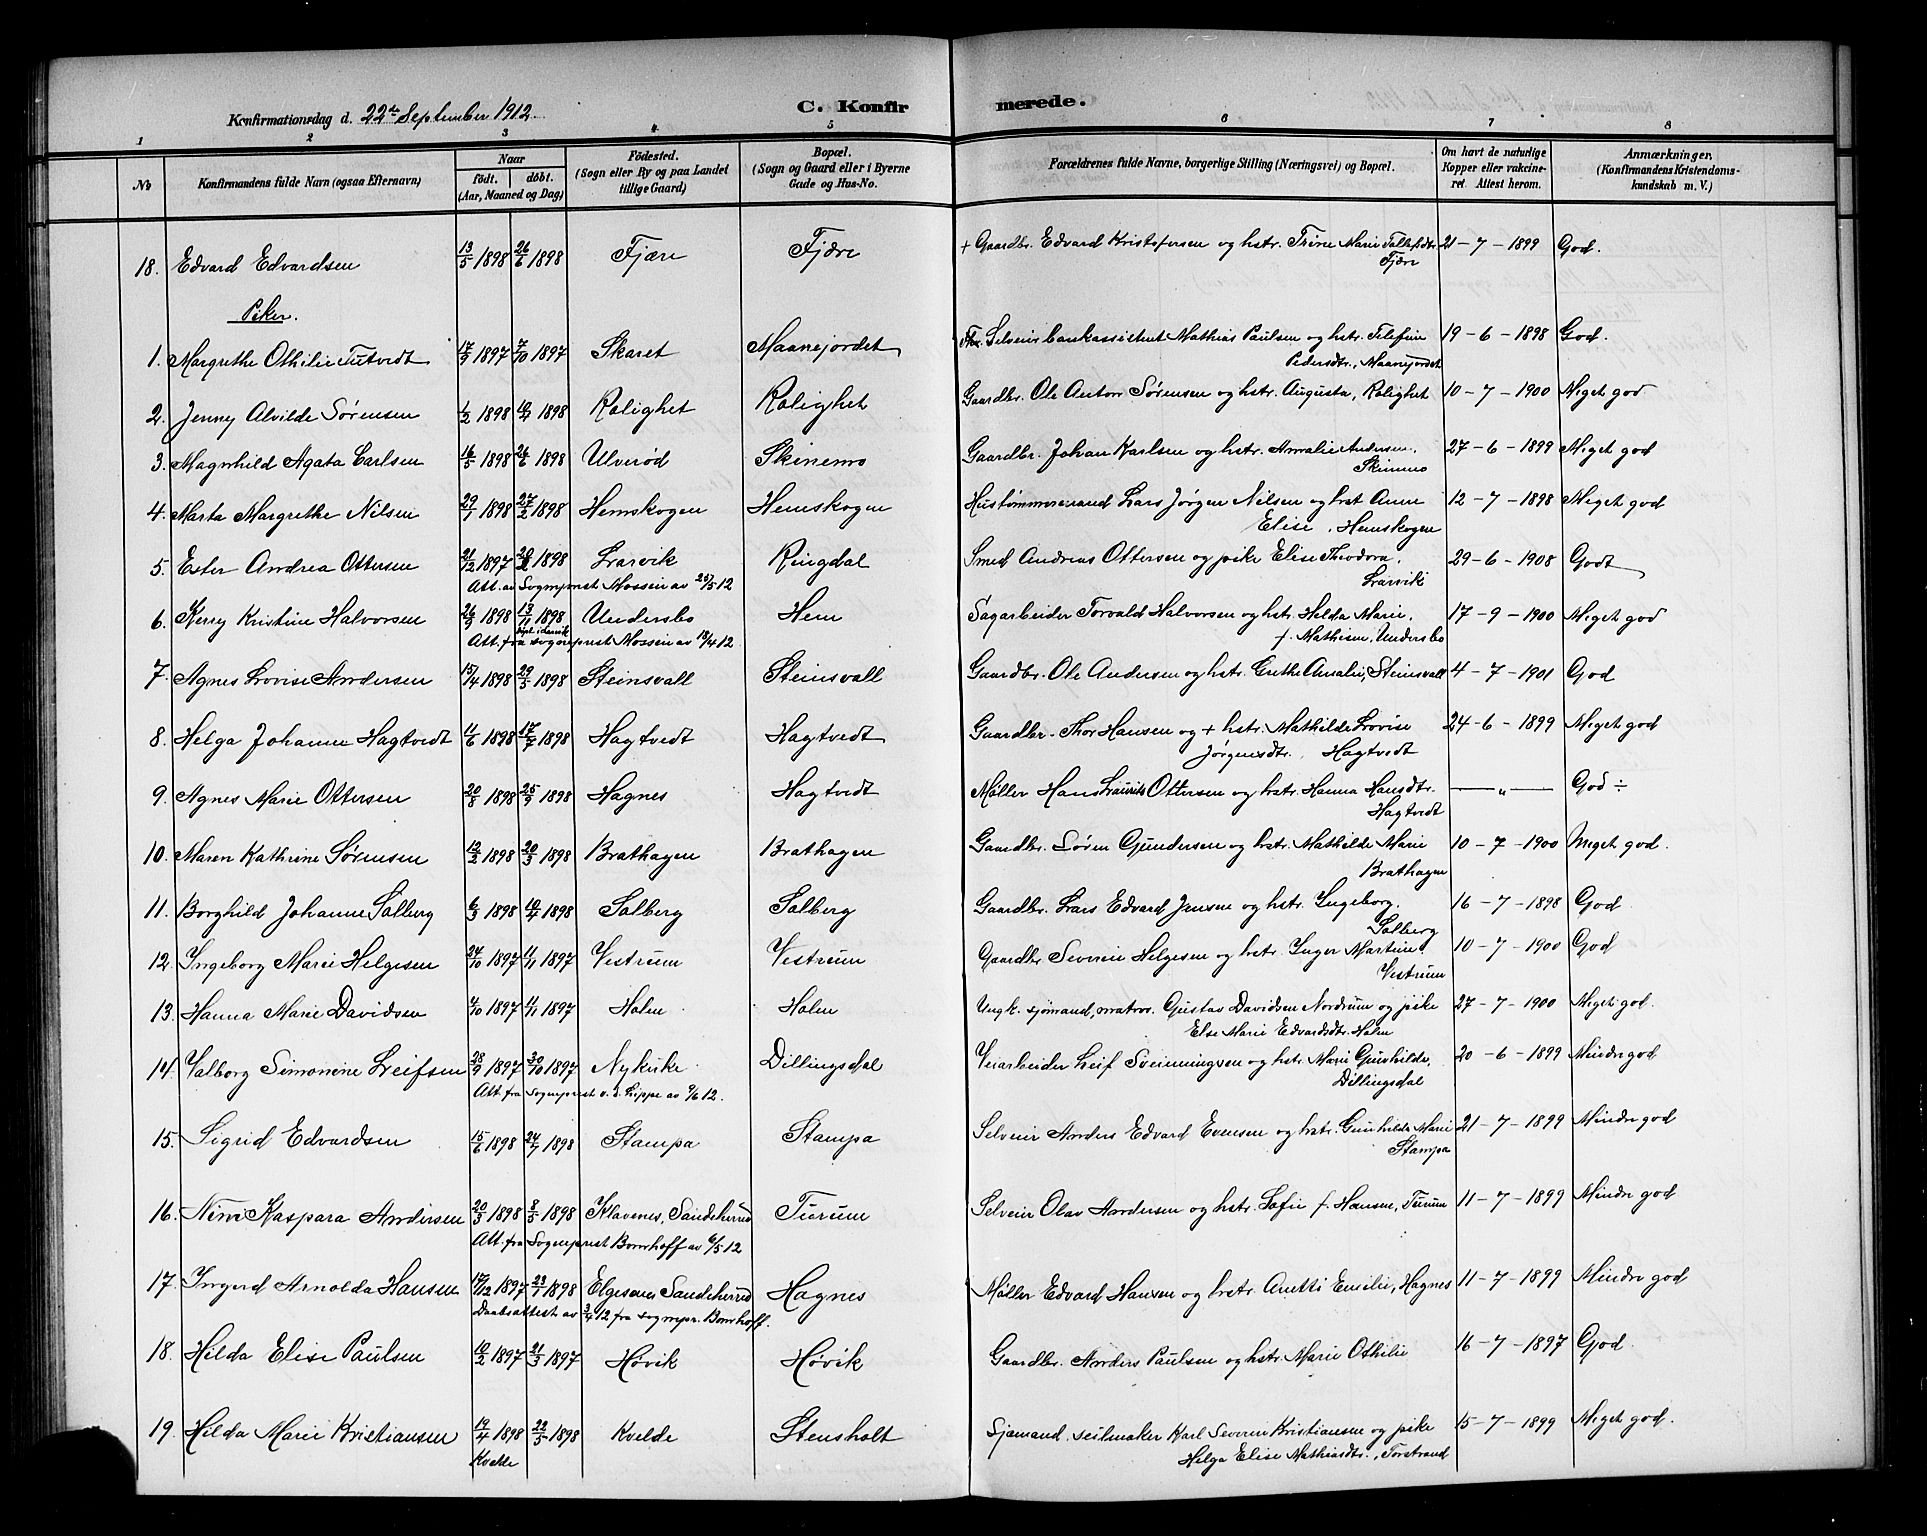 C. Konfirmerede.
Konfirmationsdag d. 22de September 1912.
1 2 3 4 5 6 7 8
No
Konfirmandens fulde Navn (ogsaa Efternavn)
Naar
født. døbt.
(Aar, Maaned og Dag)
Fødested.
(Sogn eller By og paa Landet
tillige Gaard)
Bopæl.
(Sogn og Gaard eller i Byerne
Gade og Hus-No.
Forældrenes fulde Navne, borgerlige Stilling (Næringsvei) og Bopæl.
Om havt de naturlige
Kopper eller vakcine-
ret. Attest herom.
Anmærkninger,
(Konfirmandens Kristendoms-
kundskab m. V.)
18. Edvard Edvardsen 13/5 1898 26/6 1898 Fjære Fjære + Gaardbr. Edvard Kristofersen og hstr. Trine Marie Tollefsdtr. 21-7-1899 God.
Fjære
Piker.
1. Margrethe Othilie Tutvedt 17/9 1897 7/10 1897 Skaret Maanejordet Selveier bankassistent Mathias Paulsen og hstr. Telefine 19-6-1898 God.
Pedersdtr., Maanejordet
2. Jenny Alvilde Sørensen 1/2 1898 1898 Rolighet Rolighet Gaardbr. Ole Anton Sørensen og hstr. Augusta, Rolighet 10-7-1900 Meget god
3. Magnhild Agata Carlsen 16/5 1898 26/6 1898 Ulverød Skinemo Gaardbr. Johan Karlsen og hstr. Amalie Andersen. 27-6-1899 Meget god
Skinmo
4. Marta Margrethe Nilsen 29/1 1898 27/2 1898 Hemskogen Hemskogen Hustømmermand Lars Jørgen Nilsen og hst Anne 12-7-1898 Meget god
Elise, Hemskogen
5. Ester Andrea Ottersen 21/12 1897 1898 Larvik Ringdal Smed Andreas Ottersen og pike Elise Theodora, 29-6-1908 Godt
Larvik
Att. av Sogneprest Mossin av 20/5 12
6. Kerry Kristine Halvorsen 26/9 1898 13/11 1898 Undersbo Hem Sagarbeider Torvald Halvorsen og hstr. Helda Marie, 17-9-1900 Meget god
f. Mathisen, Undersbo
døpt i Larvik
Att. fra sogneprest Mossin av 13/4 12
7. Agnes Lovise Andersen 15/4 1898 29/5 1898 Steinsvall Steinsvall Gaardbr. Ole Andersen og hstr. Grethe Amalie, Steinsvall 4-7-1901 God
8. Helga Johanne Hagtvedt 4/6 1898 17/7 1898 Hagtvedt Hagtvedt Gaardbr. Thor Hansen og + hstr. Mathilde Lovise 24-6-1899 Meget god
Jørgensdtr. Hagtvedt
9. Agnes Marie Ottersen 20/8 1898 25/9 1898 Hagnes Hagtvedt Møller Hans Laurits Ottersen og hstr. Hanna Hansdtr. — „ — God ÷
Hagtvedt
10. Maren Kathrine Sørensen 12/2 1898 20/3 1898 Brathagen Brathagen Gaardbr. Søren Gundersen og hstr. Mathilde Marie 10-7-1900 Meget god.
Brathagen
11. Borghild Johanne Solberg 6/3 1898 10/4 1898 Solberg Solberg Gaardbr. Lars Edvard Jensen og hstr. Ingeborg. 16-7-1898 God
Solberg
12. Ingeborg Marie Helgesen 24/10 1897 11/11 1897 Vestrum Vestrum Gaardbr Severin Helgesen og hstr. Inger Martine 10-7-1900 God
Vestrum
13. Hanna Marie Davidsen 4/10 1897 4/11 1897 Holm Holm Ungk. sjømand, matros. Gustav Davidsen Nordrum og pike 27-7-1900 Meget god.
Else Marie Edvardsdtr. Holm
14. Valborg Simonine Leifsen 28/9 1897 30/10 1897 Nykirke Dillingsdal Veiarbeider Leif Sveinungsen og hstr. Marie Gunhilde, 20-6-1899 Mindre god
Dillingsdal
Att. fra sogneprest v. d. Lippe av 9/6 12.
15. Sigrid Edvardsen 15/6 1898 24/7 1898 Stampa Stampa Selveier Anders Edvard Evensen og hstr. Gunhilde Marie 21-7-1899 Mindre god
Stampa
16. Nini Kaspara Andersen 20/3 1898 8/5 1898 Klavenes, Sandeherred Turum Selveier Olav Andersen og hstr. Sofie f. Hansen, Turum 11-7-1899 Mindre god
Att. fra Sogneprest Bomhoff av 6/5 12
17. Ingerd Arnolda Hansen 17/12 1897 23/1 1898 Elgesem Sandeherred Hagnes Møller Edvard Hansen og hstr. Anetti Emilie, Hagnes 11-7-1899 Mindre god
Daabsattest av 3/4 12 fra sognepr. Bomhoff.
18. Hilda Elise Paulsen 10/2 1897 21/3 1897 Høvik Høvik Gaardbr. Anders Paulsen og hstr. Marie Othilie 16-7-1897 God
19. Hilda Marie Kristiansen 19/4 1898 29/5 1898 Kvelde Stensholt Sjømand, seilmaker Karl Severin Kristiansen og pike 15-7-1899 Meget god.
Kvelde Helga Elise Mathiasdtr., Torstrand